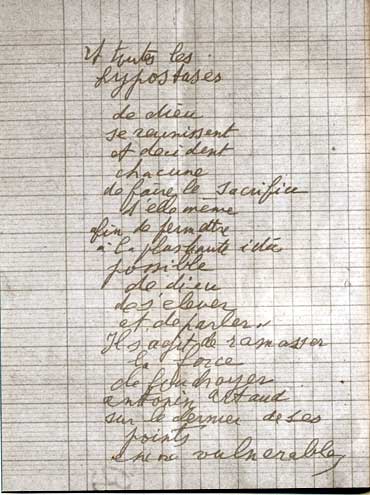 et toutes les
hypostases
de dieu
se reunissent
et decident
chacune
de faire le sacrifice
d'elle même
afin de permettre
à la plus haute idée
possible
de dieu
de s'elever
et de parler"
Il s'agit de ramasser
la force
de foudroyer
antonin artaud
sur le dernier de ses
points
encore vulnerables